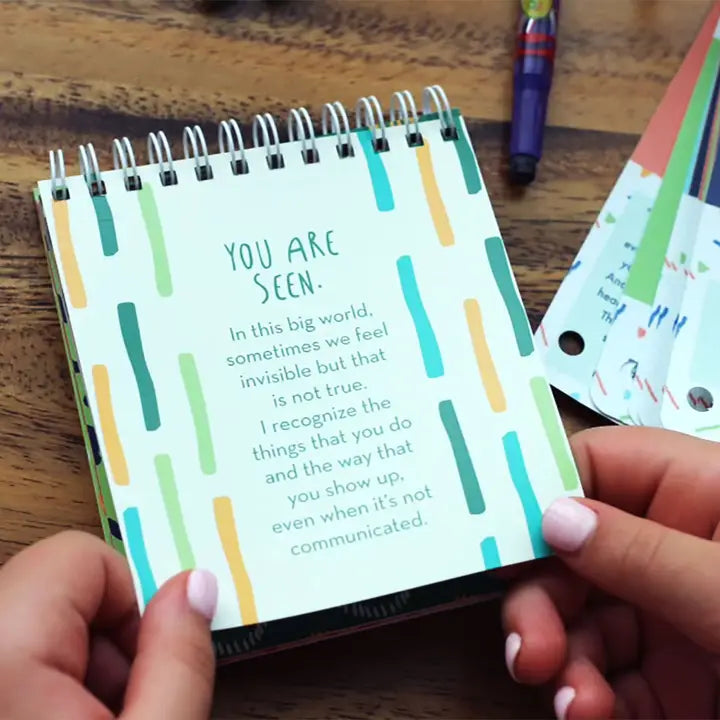 YOU ARE
SEEN.
In this big world,
sometimes we feel
invisible but that
is not true.
I recognize the
things that you do
and the way that
you show up,
even when it's not
communicated.